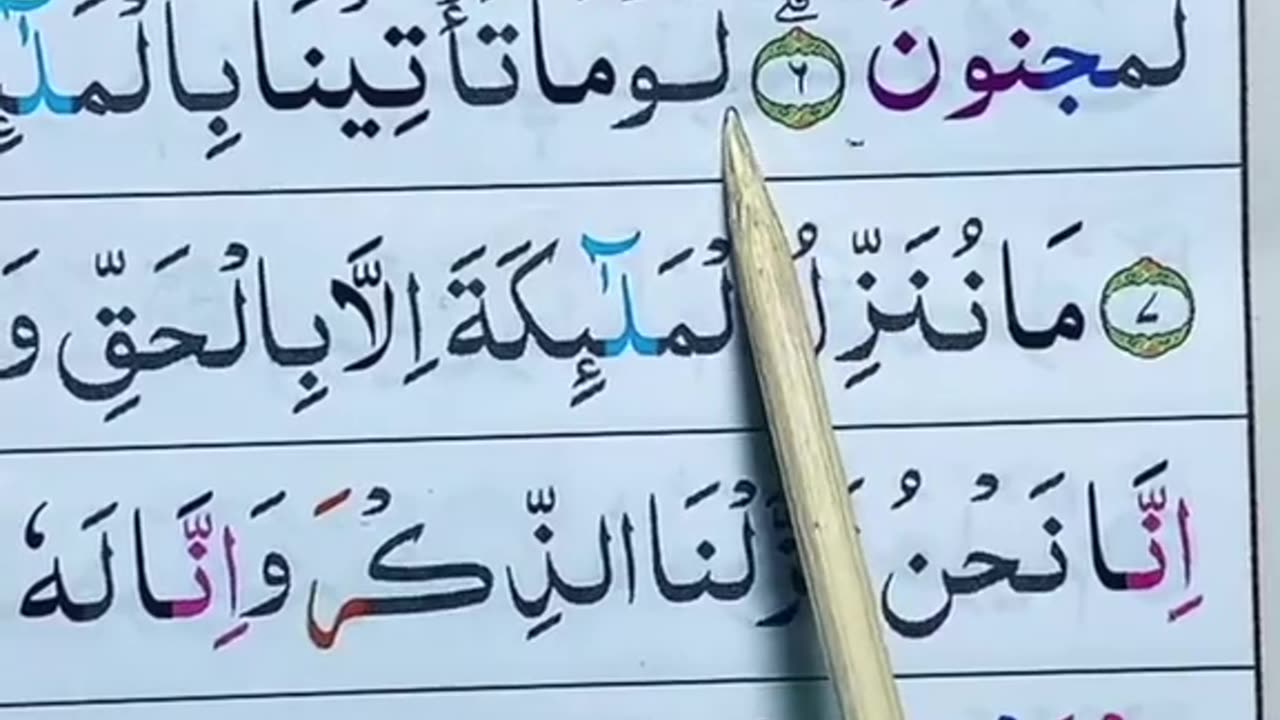 لَمَجْنُوْنٌ ۶ لَوْ مَا تَاْتِيْنَا بِالْمَلٰٓئِ
۷ مَا نُنَزِّلُ الْمَلٰٓئِكَةَ اِلَّا بِالْحَقِّ وَ
اِنَّا نَحْنُ نَزَّلْنَا الذِّكْرَ وَاِنَّا لَهٗ